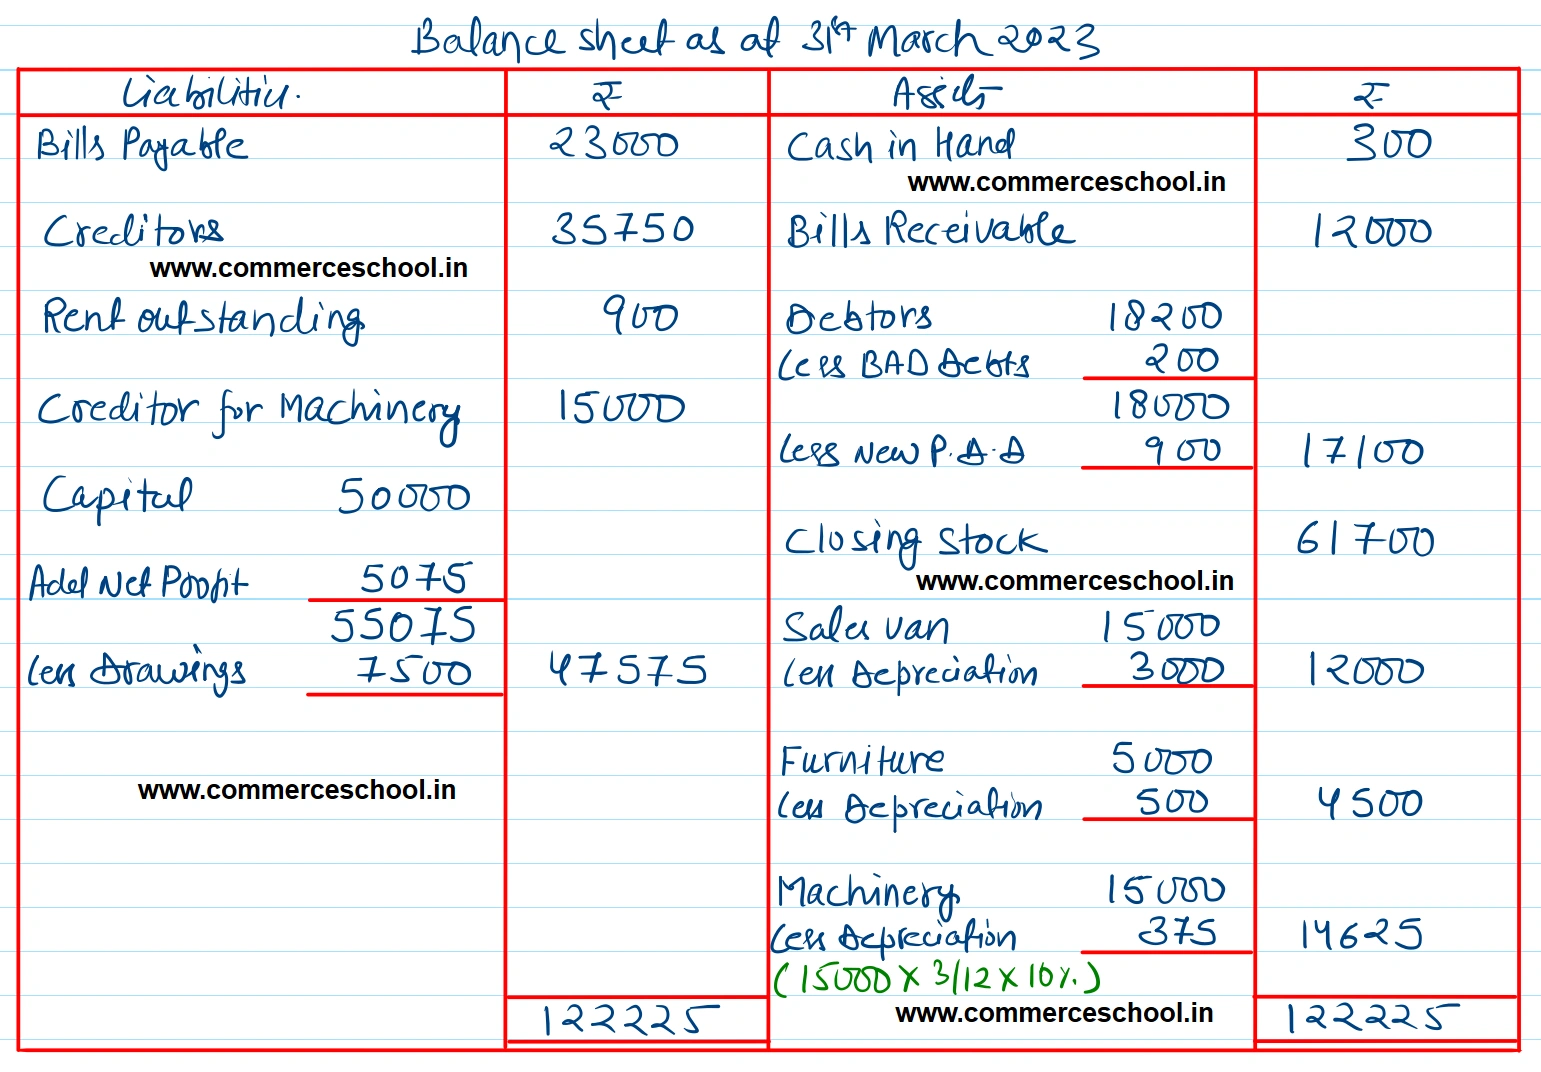 Balance sheet as at 31st March 2023
Liabilities. ₹ Assets ₹
Bills Payable 23000 Cash in Hand 300
www.commerceschool.in
Creditors 35750 Bills Receivable 12000
www.commerceschool.in
Rent outstanding 900 Debtors 18200
Less BAD Debts 200
Creditor for Machinery 15000 18000
Less New P.D.D 900 17100
Capital 50000
Closing Stock 61700
Add Net Profit 5075 www.commerceschool.in
55075 Sales van 15000
Less Drawings 7500 47575 Less Depreciation 3000 12000
Furniture 5000
www.commerceschool.in Less Depreciation 500 4500
Machinery 15000
Less Depreciation 375 14625
(15000 X 3/12 X 10%)
www.commerceschool.in
122225 122225